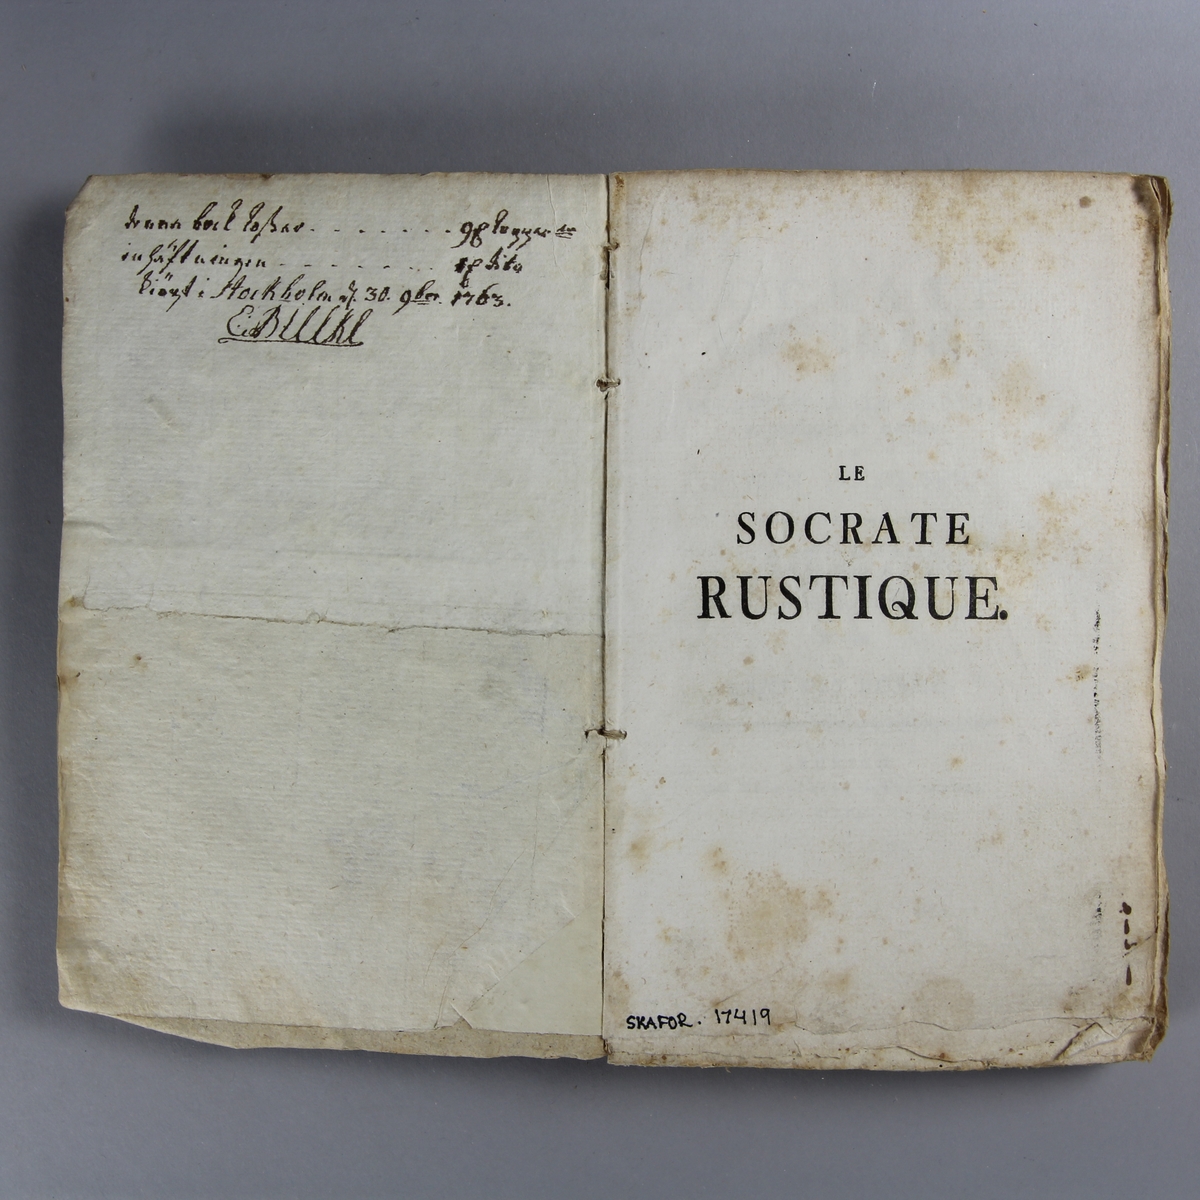 denna bok kostar - - - - - - - -
inhäftningen - - - - - - - -
kiöpt i Stockholm d. 30. 9ber. 1763.
LE
SOCRATE
RUSTIQUE.
SKAFOR. 17419